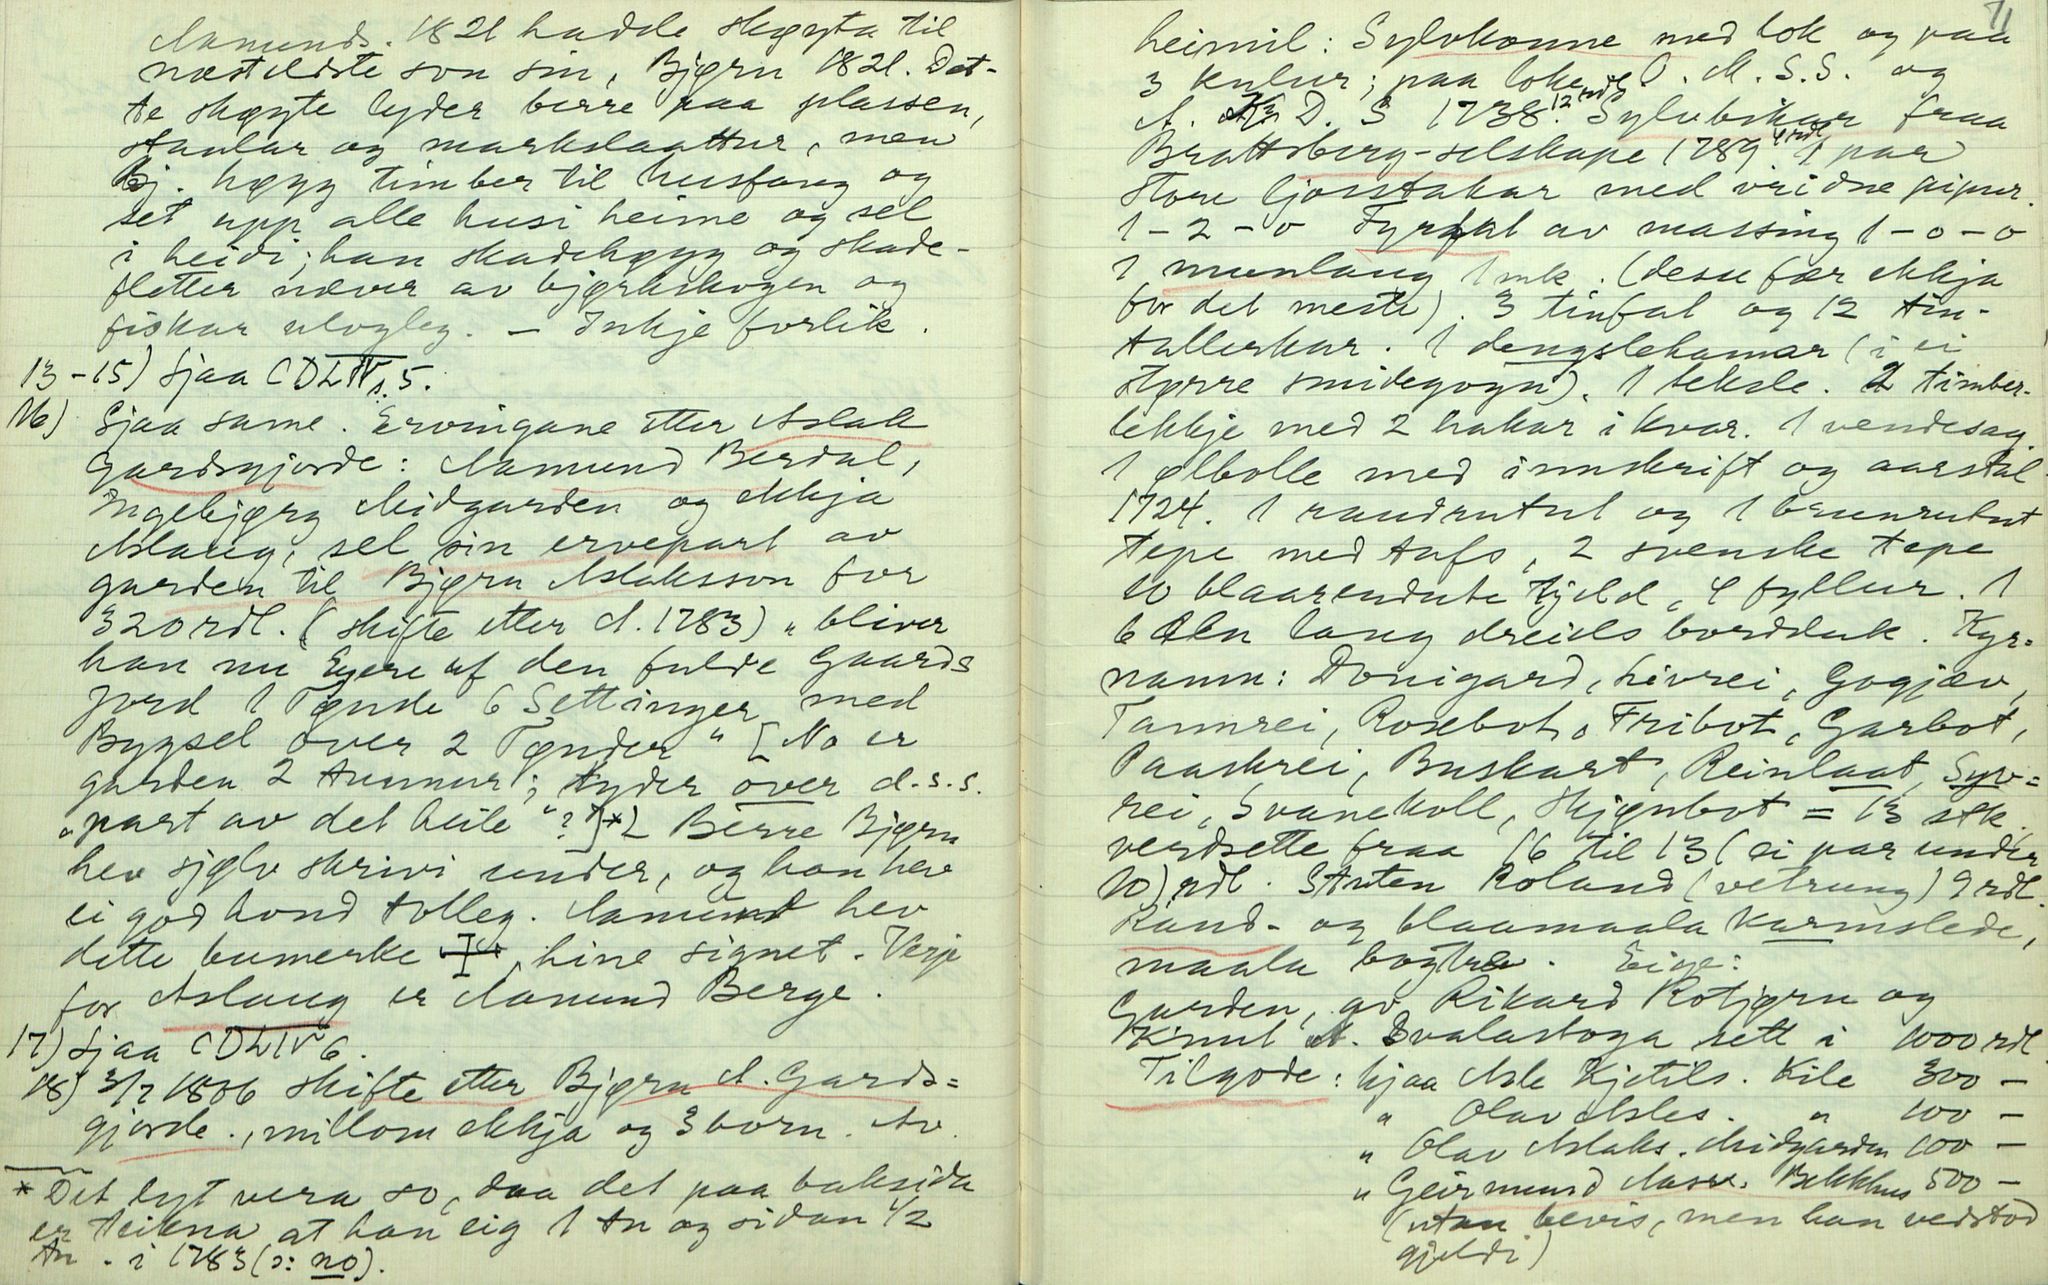 Aamunds. 1821 hadde skøyta til
næsteldste son sin, Bjørn 1821. Det-
te skøyte lyder berre paa plassen,
staular og markslaattur, men
Bj. høgg timber til husfang og
set upp alle husi heime og sel
i heidi; han skadehøgg og skade-
fletter næver av bjørkskogen og
fiskar ulogleg. – Inkje forlik.
13-15) Sjaa CDLIV, 5.
16) Sjaa same. Ervingane etter Aslak
Gardsgjorde: Aamund Berdal,
Ingebjørg Midgarden og ekkja
Aslaug, sel sin ervepart av
garden til Bjørn Aslaksson for
320 rdl. (skifte etter A. 1783) "bliver
han nu Ejere af den fulde Gaards
Jord 1 Tønde 6 Settinger med
Bygsel over 2 Tønder" [No er
garden 2 tunnur; tyder over d.s.s.
"part av det heile"?]* Berre Bjørn
hev sjølv skrivi under, og han hev
ei god hond tolleg. Aamund hev
dette bumerke hine signet. Verje
for Aslaug er Aamund Berge.
17) Sjaa CDLIV 6.
18) 3/7 1806 skifte etter Bjørn A. Gards=
gjorde, millom ekkja og 3 born. Av
* Det lyt vera so, daa det paa baksida
er teikna at han eig 1 tn og sidan 1/2
tn. i 1783 (ɔ: no).
71
heimil: Sylvkanne med lok og paa
3 kulur; paa loket O. M. S. S. og
A. K D. S 1738. 12 rdl Sylvbikar fraa
Brattsberg-selskape 1789. 4 rdl 1 par
store ljosstakar med vridne pipur.
1-2-0 Fyrfat av massing 1-0-0
1 munlaug 1 mk. (desse fær ekkja
for det meste). 3 tinfat og 12 tin-
tallerkar. 1 dengslehamar (i ei
større smidegogn). 1 teksle. 2 timber-
lekkje med 2 hakar i kvar. 1 vendesag.
1 ølbolle med innskrift og aarstal
1724. 1 raudrutut og 1 brunrutut
tepe med tafs, 2 svenske tepe
10 blaarendute tjeld, 4 fyllur. 1
6 Aln lang dreiels bordduk. Kyr=
namn: Donigard, Livrei, Gogjæv,
Tannrei, Rosebot, Fribot, Garbot,
Paaskrei, Buskart, Reinlaat, Syv=
rei, Svanekoll, Skjønbot = 13 stk.
verdsette fraa 16 til 13 (ei par under
10) rdl. Stuten Roland (vetrung) 9 rdl.
Raud- og blaamaala karmslede,
maala bogtre. Eige:
Garden, av Rikard Rotjørn og
Knut A. Svalastoga sett i 1000 rdl
Tilgode: hjaa Asle Kjetils. Kile 300 –
" Olav Asles. " 100 –
" Olav Aslaks. Midgarden 100 –
" Geirmund Aasm. Bekkhus 500 –
(utan bevis, men han vedstod
gjeldi)